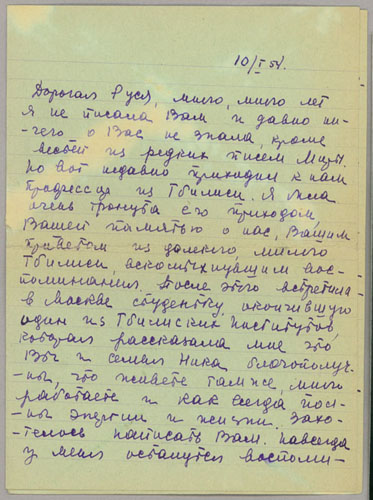 10/I 54.
Дорогая Руся, много, много лет
я не писала Вам и давно ни-
чего о Вас не знала, кроме
вестей из редких писем Миры.
Но вот недавно приходил к нам
профессор из Тбилиси. Я была
очень тронута его приходом,
Вашей памятью о нас, Вашим
приветом из далекого, милого
Тбилиси, всколыхнувшим вос-
поминания. После этого встретила
в Москве студентку, окончившую
один из Тбилисских институтов,
которая рассказала мне, что
Вы и семья Ника благополуч-
-ны, что живете там же, много
работаете и как всегда пол-
-ны энергии и жизни. Захо-
-телось написать Вам. Навсегда
у меня останутся воспоми-